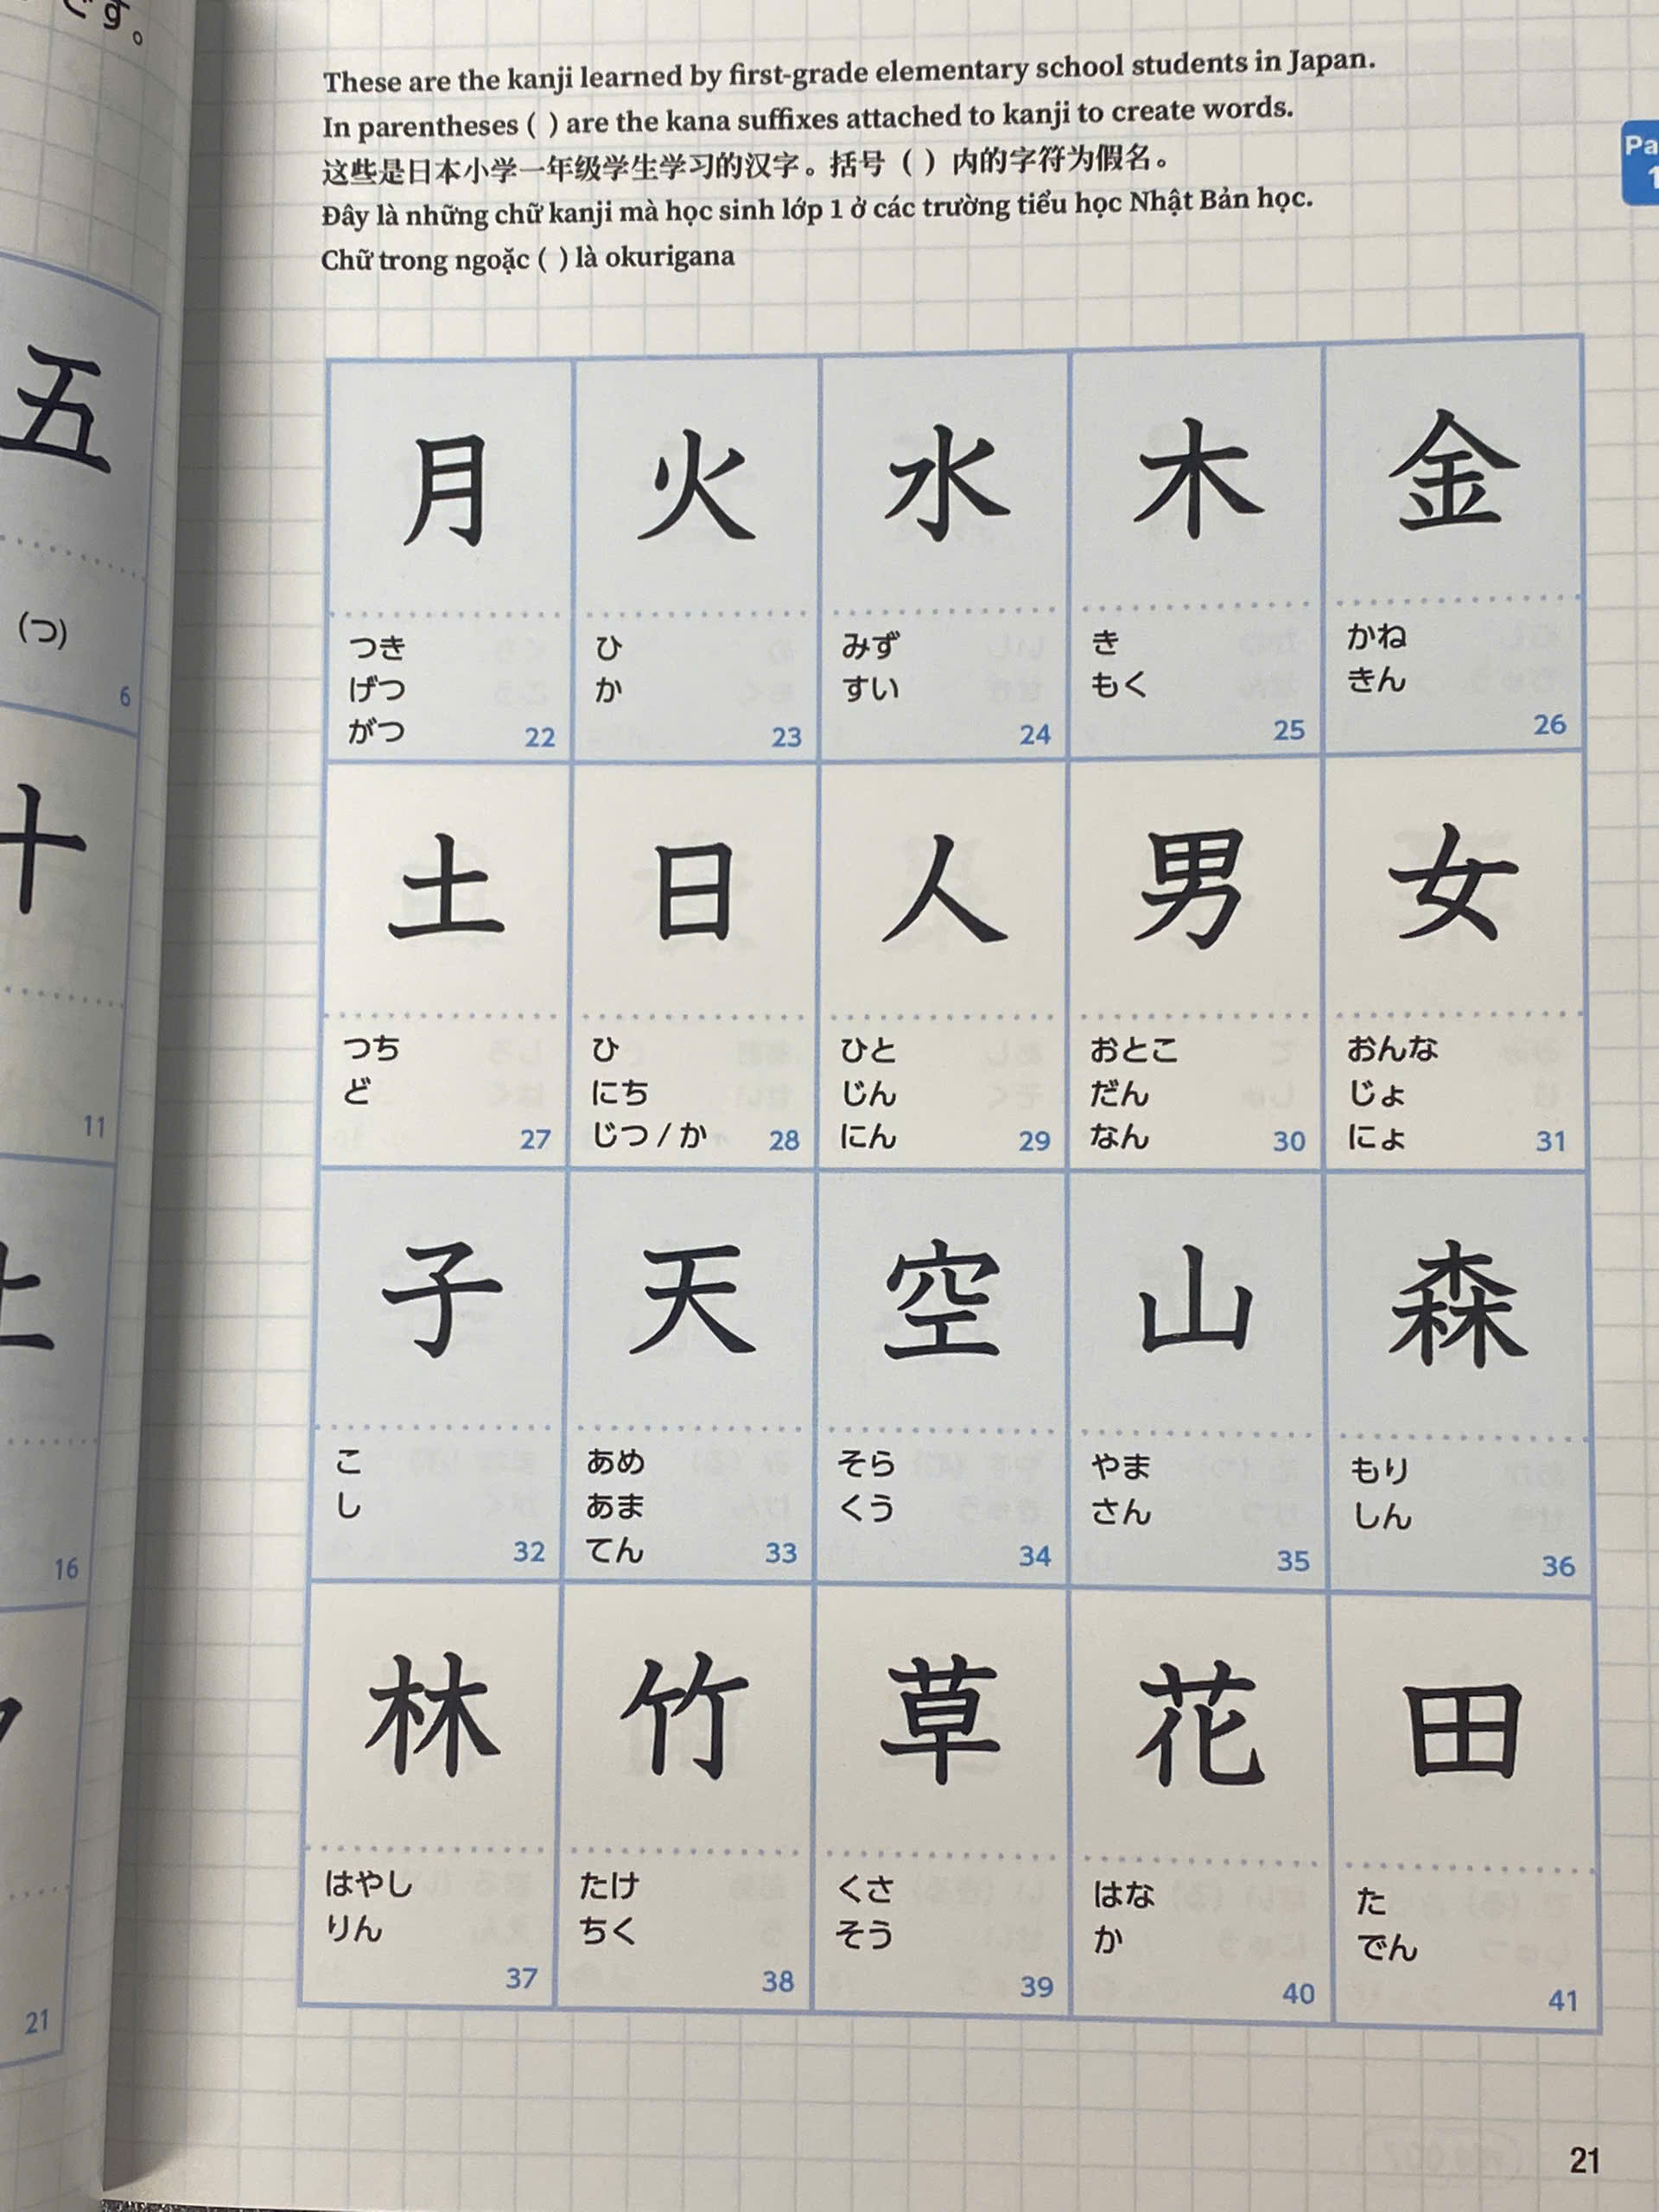 す。
五
(つ)
6
十
11
16
21
These are the kanji learned by first-grade elementary school students in Japan.
In parentheses ( ) are the kana suffixes attached to kanji to create words.
这些是日本小学一年级学生学习的汉字。括号（ ）内的字符为假名。
Đây là những chữ kanji mà học sinh lớp 1 ở các trường tiểu học Nhật Bản học.
Chữ trong ngoặc ( ) là okurigana
月
つき
げつ
がつ
22
火
ひ
か
23
水
みず
すい
24
木
き
もく
25
金
かね
きん
26
土
つち
ど
27
日
ひ
にち
じつ / か
28
人
ひと
じん
にん
29
男
おとこ
だん
なん
30
女
おんな
じょ
にょ
31
子
こ
し
32
天
あめ
あま
てん
33
空
そら
くう
34
山
やま
さん
35
森
もり
しん
36
林
はやし
りん
37
竹
たけ
ちく
38
草
くさ
そう
39
花
はな
か
40
田
た
でん
41
21